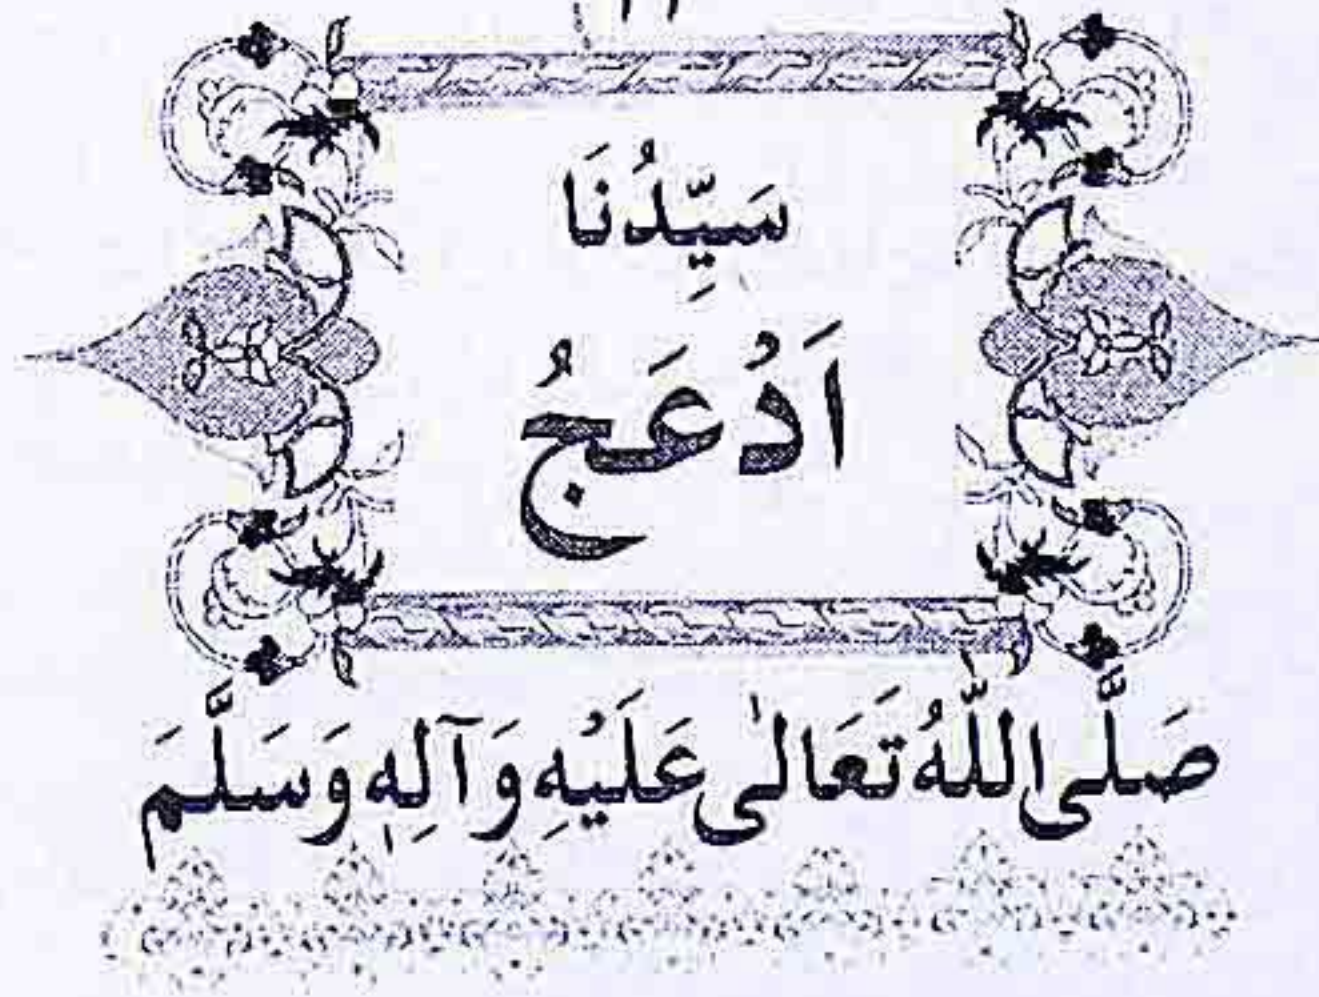 سَيِّدُنَا
اَدْعَجُ
صَلَّى اللّٰهُ تَعَالٰى عَلَيْهِ وَآلِهٖ وَسَلَّمَ